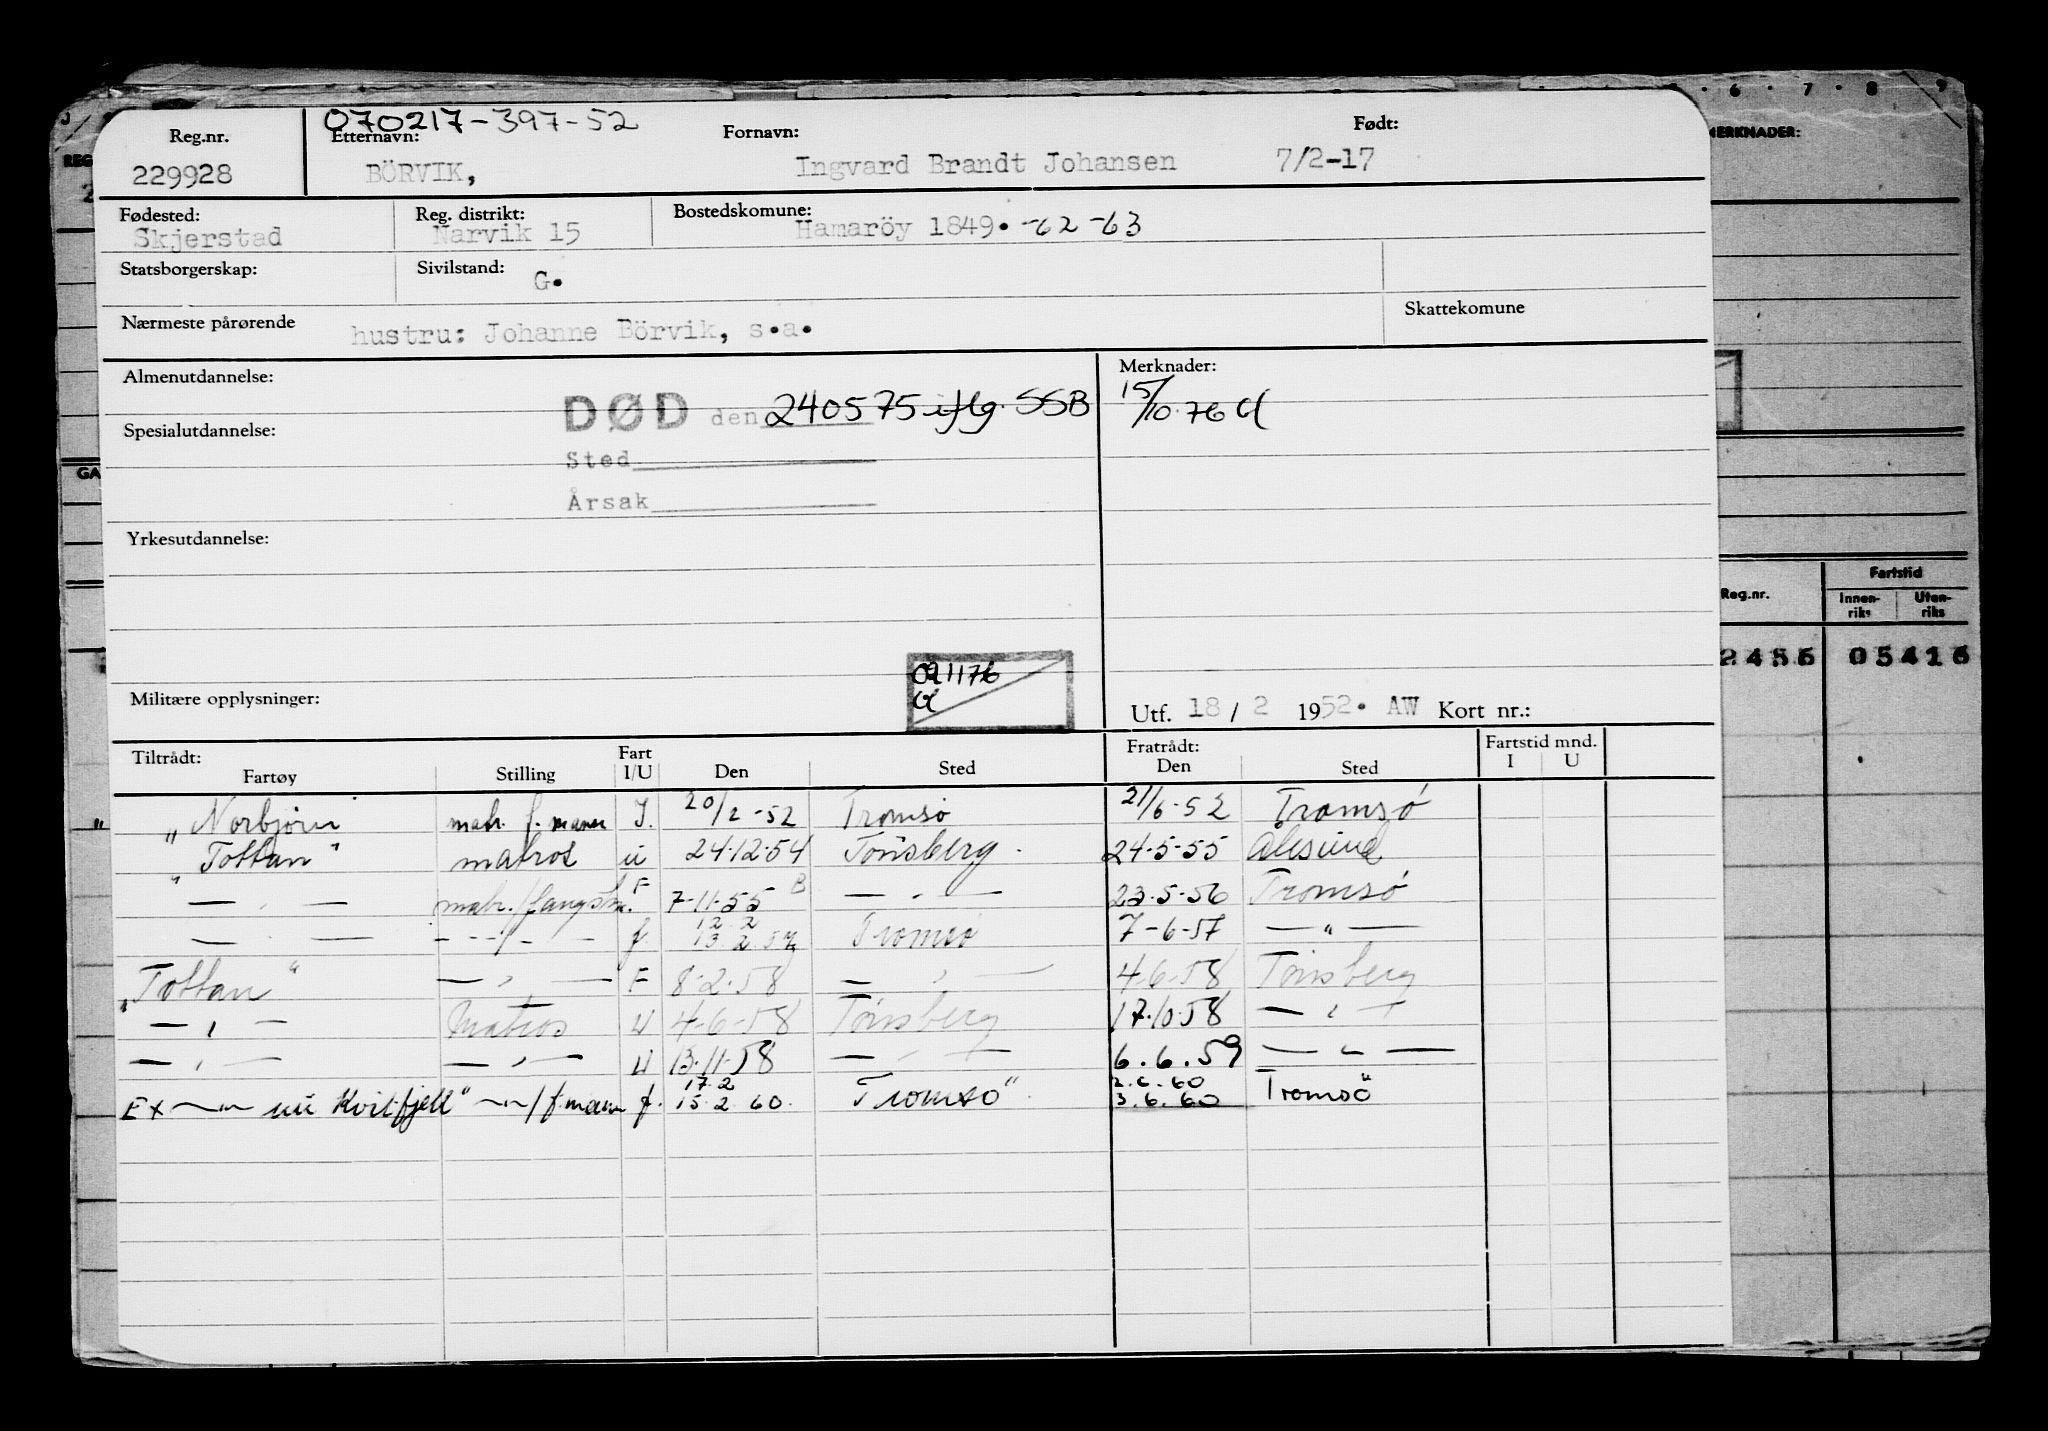 Reg.nr. 229928
070217-397-52
Etternavn: BÖRVIK,
Fornavn: Ingvard Brandt Johansen
Født: 7/2-17
Fødested: Skjerstad
Reg. distrikt: Narvik 15
Bostedskomune: Hamaröy 1849. -62 -63
Statsborgerskap:
Sivilstand: G.
Nærmeste pårørende hustru: Johanne Börvik, s.a.
Skattekomune
Almenutdannelse:
DØD den 240575 iflg. SSB
Merknader:
15/10.76
Spesialutdannelse:
Sted
Årsak
Yrkesutdannelse:
091176
Militære opplysninger:
Utf. 18 / 2 1952. AW Kort nr.:
Tiltrådt: Fartøy Stilling Fart I/U Den Sted Fratrådt: Den Sted Fartstid mnd. I U
"Norbjørn" matr. f. mann I. 20/2-52 Tromsø 21/6-52 Tromsø
"Tottan" matros u 24.12.54 Tønsberg 24.5-55 Ålesund
— " — matr./fangstm. F 7-11-55 B — " — 23.5.56 Tromsø
— " — - - -/- - f 12 2 13 2 57 Tromsø 7-6-57 — " —
"Tottan" — " — F 8.2.58 — " — 4.6.58 Tønsberg
— " — Matros U 4-6-58 Tønsberg 17.10.58 — " —
— " — — " — U 13.11.58 — " — 6.6.59 — " —
Ex —"— nu Kvitfjell" —"—/f.mann f. 17.2 15.2 60. Tromsø" 2.6.60 3.6.60 Tromsø"
MERKNADER:
REG
GA
Reg.nr. Fartstid
Innen-riks Uten-riks
2486 05416
6 7 8 9